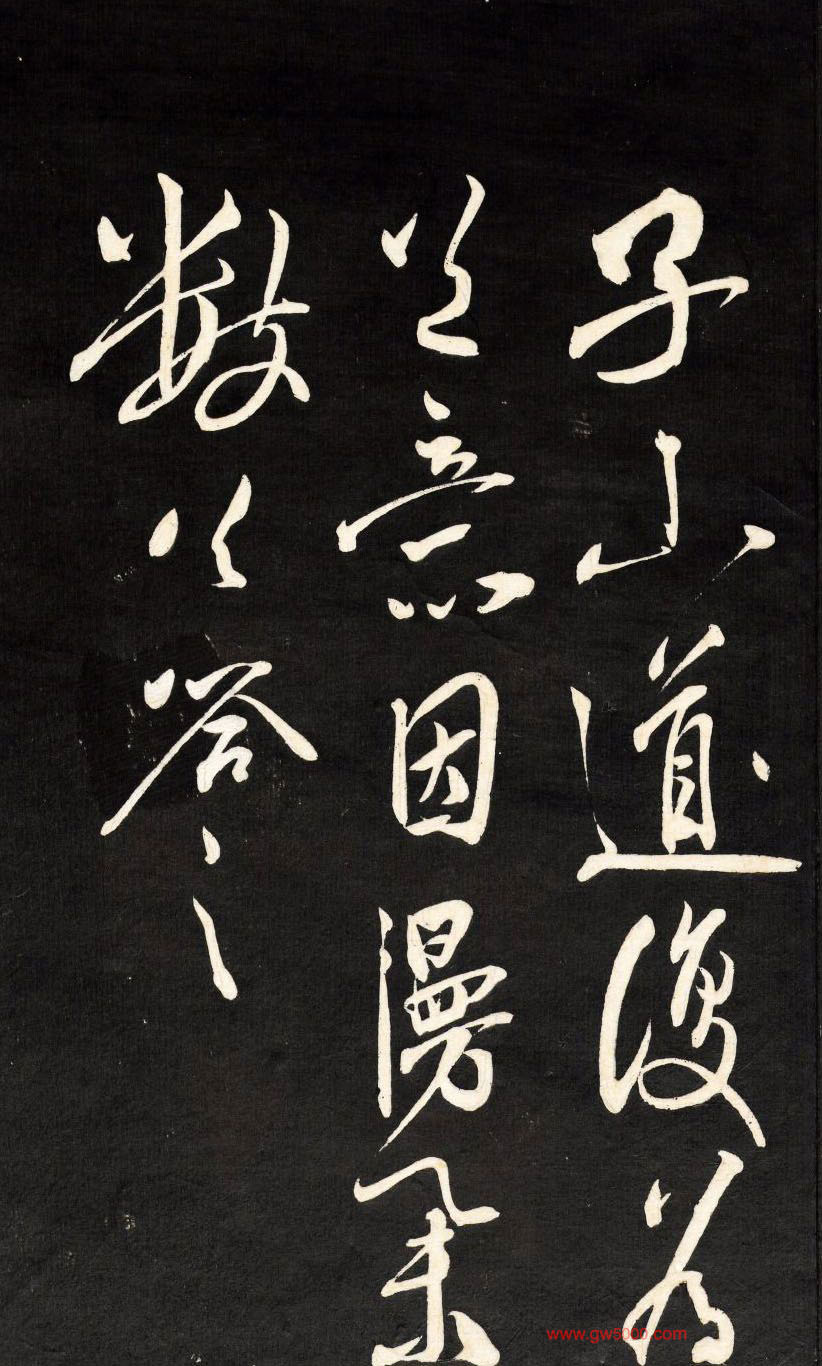 子山道復為
意因漫
數以答之
www.gw5000.com